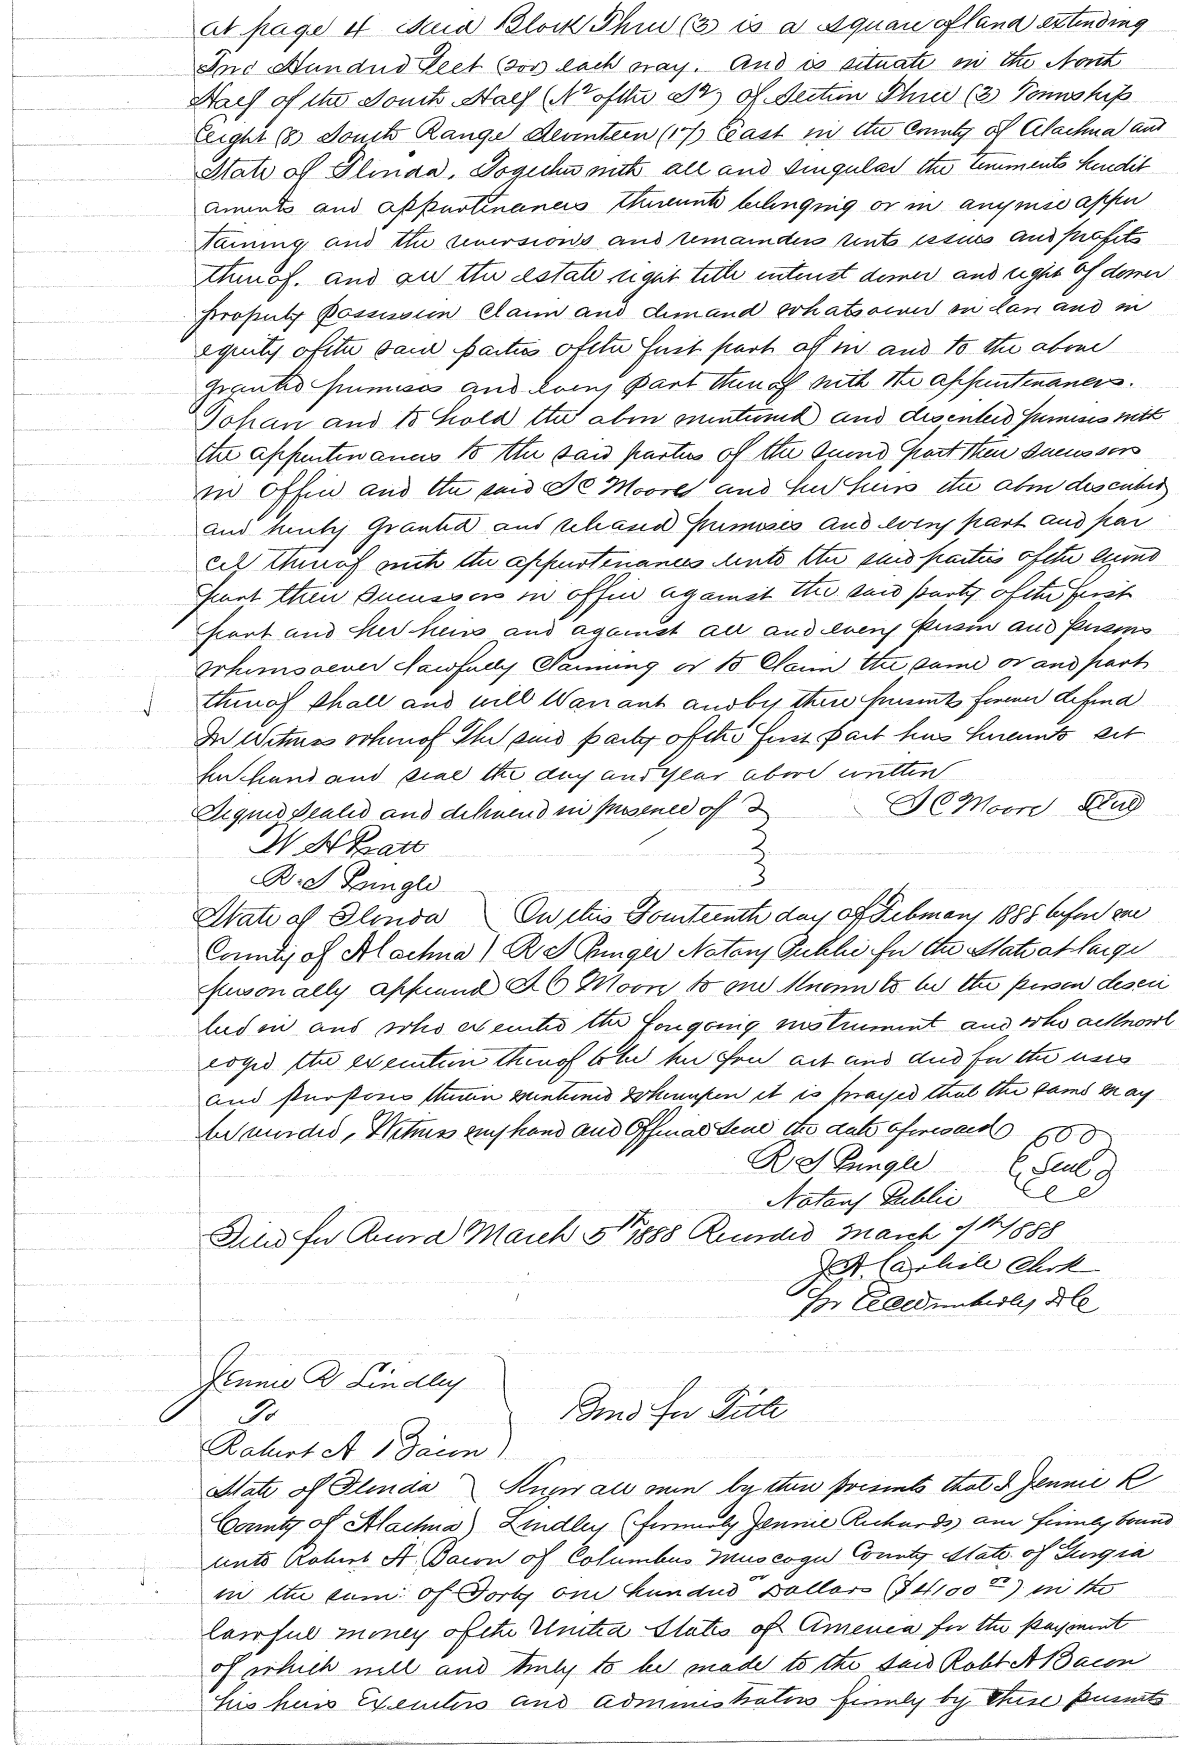 at page 4 Said Block Three (3) is a square of land extending
Two Hundred Feet (200) each way. And is situate in the North
Half of the South Half (N½ of the S½) of Section Three (3) Township
Eight (8) South Range Seventeen (17) East in the County of Alachua and
State of Florida, Together with all and singular the tenements heredit
aments and appurtenances thereunto belonging or in anywise apper
taining and the reversions and remainders rents issues and profits
thereof. and all the estate right title interest dower and right of dower
property possession claim and demand whatsoever in law and in
equity of the said parties of the first part of in and to the above
granted premises and every part thereof with the appurtenances.
To have and to hold the above mentioned and described premises with
the appurtenances to the said parties of the second part their successors
in office and the said S C Moore and her heirs the above described
and hereby granted and released premises and every part and par
cel thereof with the appurtenances unto the said parties of the second
part their successors in office against the said party of the first
part and her heirs and against all and every person and persons
whomsoever lawfully claiming or to claim the same or and part
thereof shall and will Warrant and by these presents forever defend
In Witness whereof The said party of the first part has hereunto set
her hand and seal the day and year above written
Signed Sealed and delivered in presence of S C Moore Seal
W H Pratt
R. S Pringle
State of Florida On this Fourteenth day of February 1888 before me
County of Alachua ) R S Pringle Notary Public for the State at large
personally appeared S C Moore to me known to be the person descri
bed in and who executed the foregoing instrument and who acknowl
edged the execution thereof to be her free act and deed for the uses
and purposes therein mentioned Whereupon it is prayed that the same may
be recorded, Witness my hand and Official Seal the date aforesaid
R S Pringle Seal
Notary Public
Filed for Record March 5th 1888 Recorded March 7th 1888
J A. Carlisle Clerk
DC
Jennie R Lindley
To Bond for Title
Robert A Bacon )
State of Florida Know all men by these presents that I Jennie R
County of Alachua ) Lindley (formerly Jennie Richards) am firmly bound
unto Robert A Bacon of Columbus Muscogee County State of Georgia
in the sum of Forty one hundred Dollars ($4100 00) in the
lawful money of the United States of America for the payment
of which well and truly to be made to the said Robt A Bacon
his heirs Executors and administrators firmly by these presents